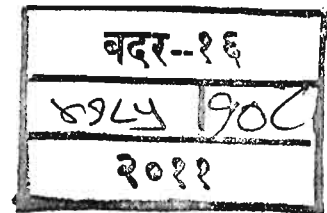 बदर--१६
४१८५ १०८
२०११